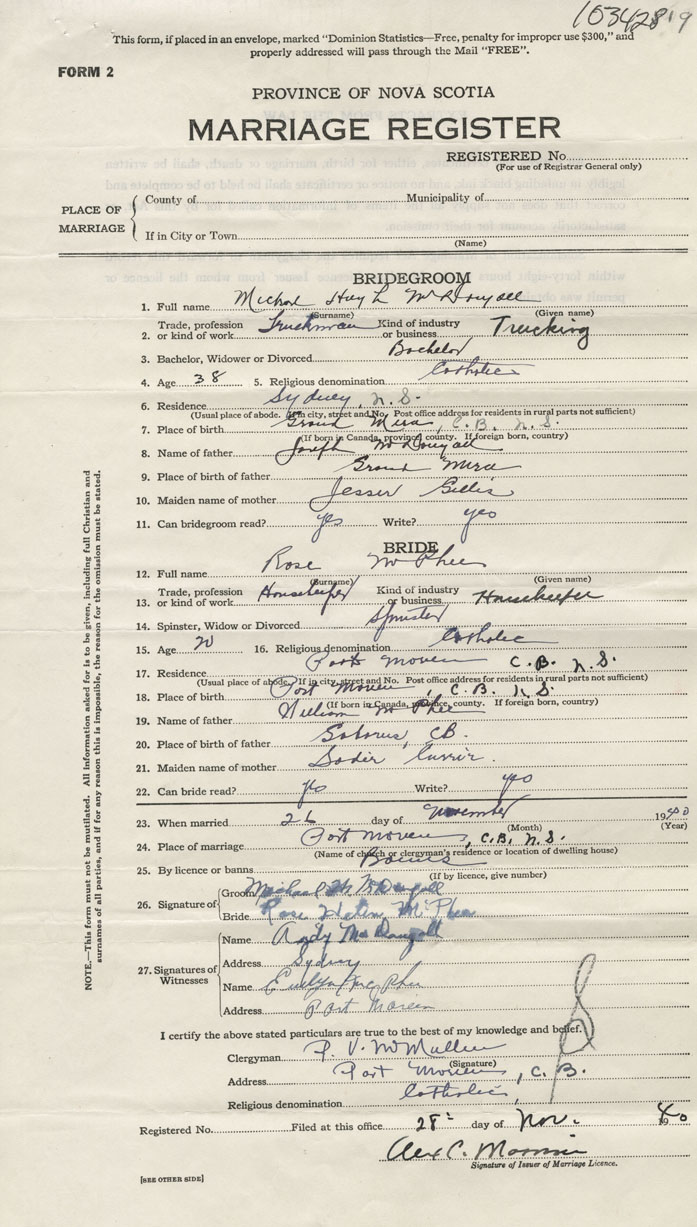 10342819
This form, if placed in an envelope, marked "Dominion Statistics—Free, penalty for improper use $300," and
properly addressed will pass through the Mail "FREE".
FORM 2
PROVINCE OF NOVA SCOTIA
MARRIAGE REGISTER
REGISTERED No.
(For use of Registrar General only)
PLACE OF MARRIAGE
County of Municipality of
If in City or Town
(Name)
BRIDEGROOM
1. Full name Michael Hugh McDougall
(Surname) (Given name)
2. Trade, profession or kind of work Truckman Kind of industry or business Trucking
3. Bachelor, Widower or Divorced Bachelor
4. Age 38 5. Religious denomination Catholic
6. Residence Sydney, N.S.
(Usual place of abode. If in city, street and No. Post office address for residents in rural parts not sufficient)
7. Place of birth Grand Mira, C.B. N.S.
(If born in Canada, province, county. If foreign born, country)
8. Name of father Joseph McDougall
9. Place of birth of father Grand Mira
10. Maiden name of mother Gillis
11. Can bridegroom read? yes Write? yes
BRIDE
12. Full name Rose McPhee
(Surname) (Given name)
13. Trade, profession or kind of work Housekeeper Kind of industry or business Housekeeper
14. Spinster, Widow or Divorced Spinster
15. Age 20 16. Religious denomination Catholic
17. Residence Port Morien C.B. N.S.
(Usual place of abode. If in city, street and No. Post office address for residents in rural parts not sufficient)
18. Place of birth Port Morien, C.B. N.S.
(If born in Canada, province, county. If foreign born, country)
19. Name of father William McPhee
20. Place of birth of father Gabarus, CB.
21. Maiden name of mother Sadie
22. Can bride read? yes Write? yes
23. When married 26 day of November 1940
(Month) (Year)
24. Place of marriage Port Morien, C.B. N.S.
(Name of church or clergyman's residence or location of dwelling house)
25. By licence or banns Banns
(If by licence, give number)
26. Signature of
Groom Michael H McDougall
Bride Rose Helen McPhee
27. Signatures of Witnesses
Name Andy MacDougall
Address Sydney
Name Evelyn MacPhee
Address Port Morien
I certify the above stated particulars are true to the best of my knowledge and belief.
Clergyman P. V. McMullin
(Signature)
Address Port Morien, C.B.
Religious denomination Catholic
Registered No. Filed at this office 28 day of Nov. 1940
Alex C.
Signature of Issuer of Marriage Licence.
[SEE OTHER SIDE]
NOTE.—This form must not be mutilated. All information asked for is to be given, including full Christian and
surnames of all parties, and if for any reason this is impossible, the reason for the omission must be stated.